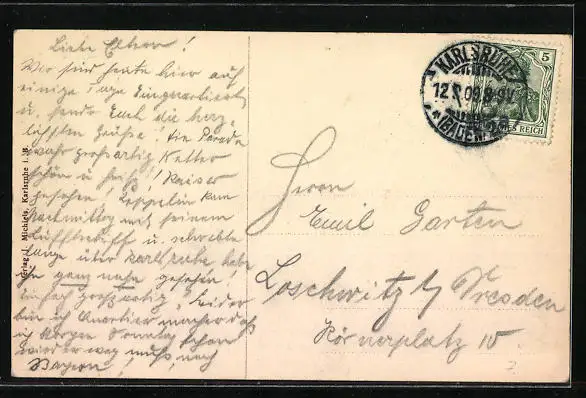 Liebe Eltern!
Wir sind heute hier auf
einige Tage Einquartiert
u. sende Euch die herz-
lichsten Grüsse! Die Parade
war grossartig Wetter
schön u. heiss! Kaiser
gesehen! Zeppelin kam
Nachmittag mit seinem
Luftschiff u. schwebte
lange über Karlsruhe habe
ihn ganz nahe gesehen!
Einfach grossartig! Leider
bin ich Quartiermacher daß
ich Morgen Sonntag schon
wieder weg muß, nach
Bayern!
Verlag J. Michiels, Karlsruhe i. B.
KARLSRUHE
12 09 8-9V
(BADEN)
5
REICH
Herrn
Emil Garten
Loschwitz b/ Dresden
Körnerplatz 10